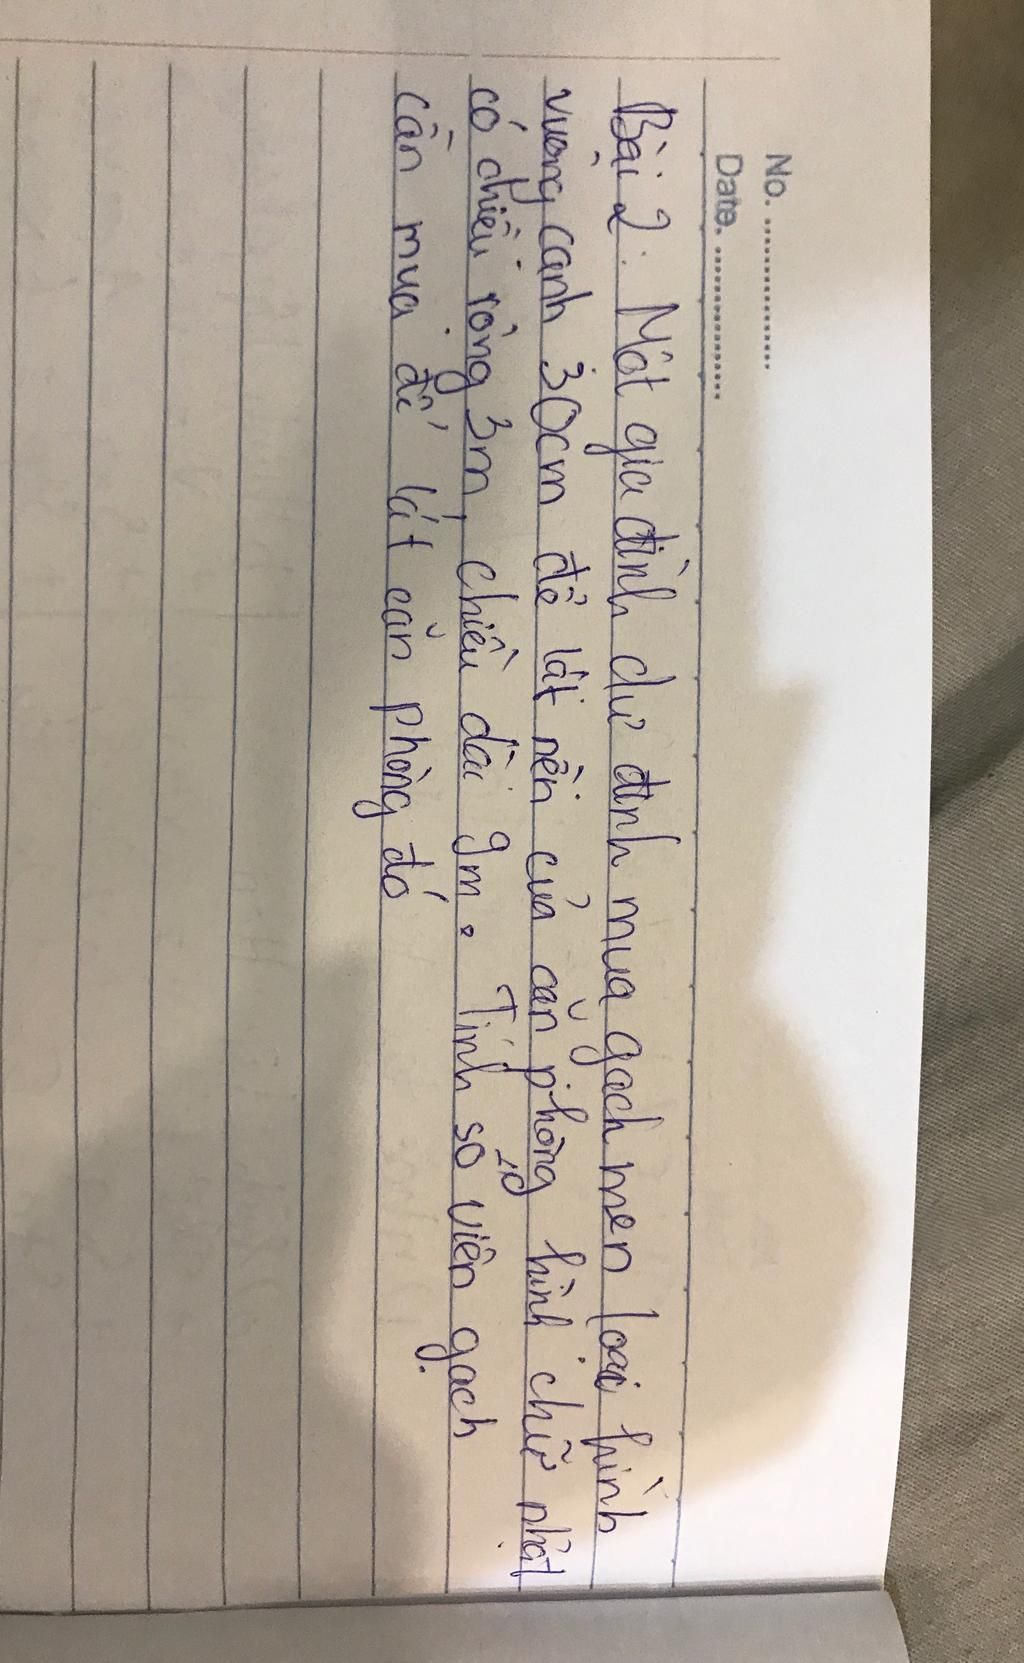 No. ................
Date. ................
Bài 2: Một gia đình dự định mua gạch men loại hình
vuông cạnh 30cm để lát nền của căn phòng hình chữ nhật
có chiều rộng 3m, chiều dài 9m. Tính số viên gạch
cần mua để lát căn phòng đó